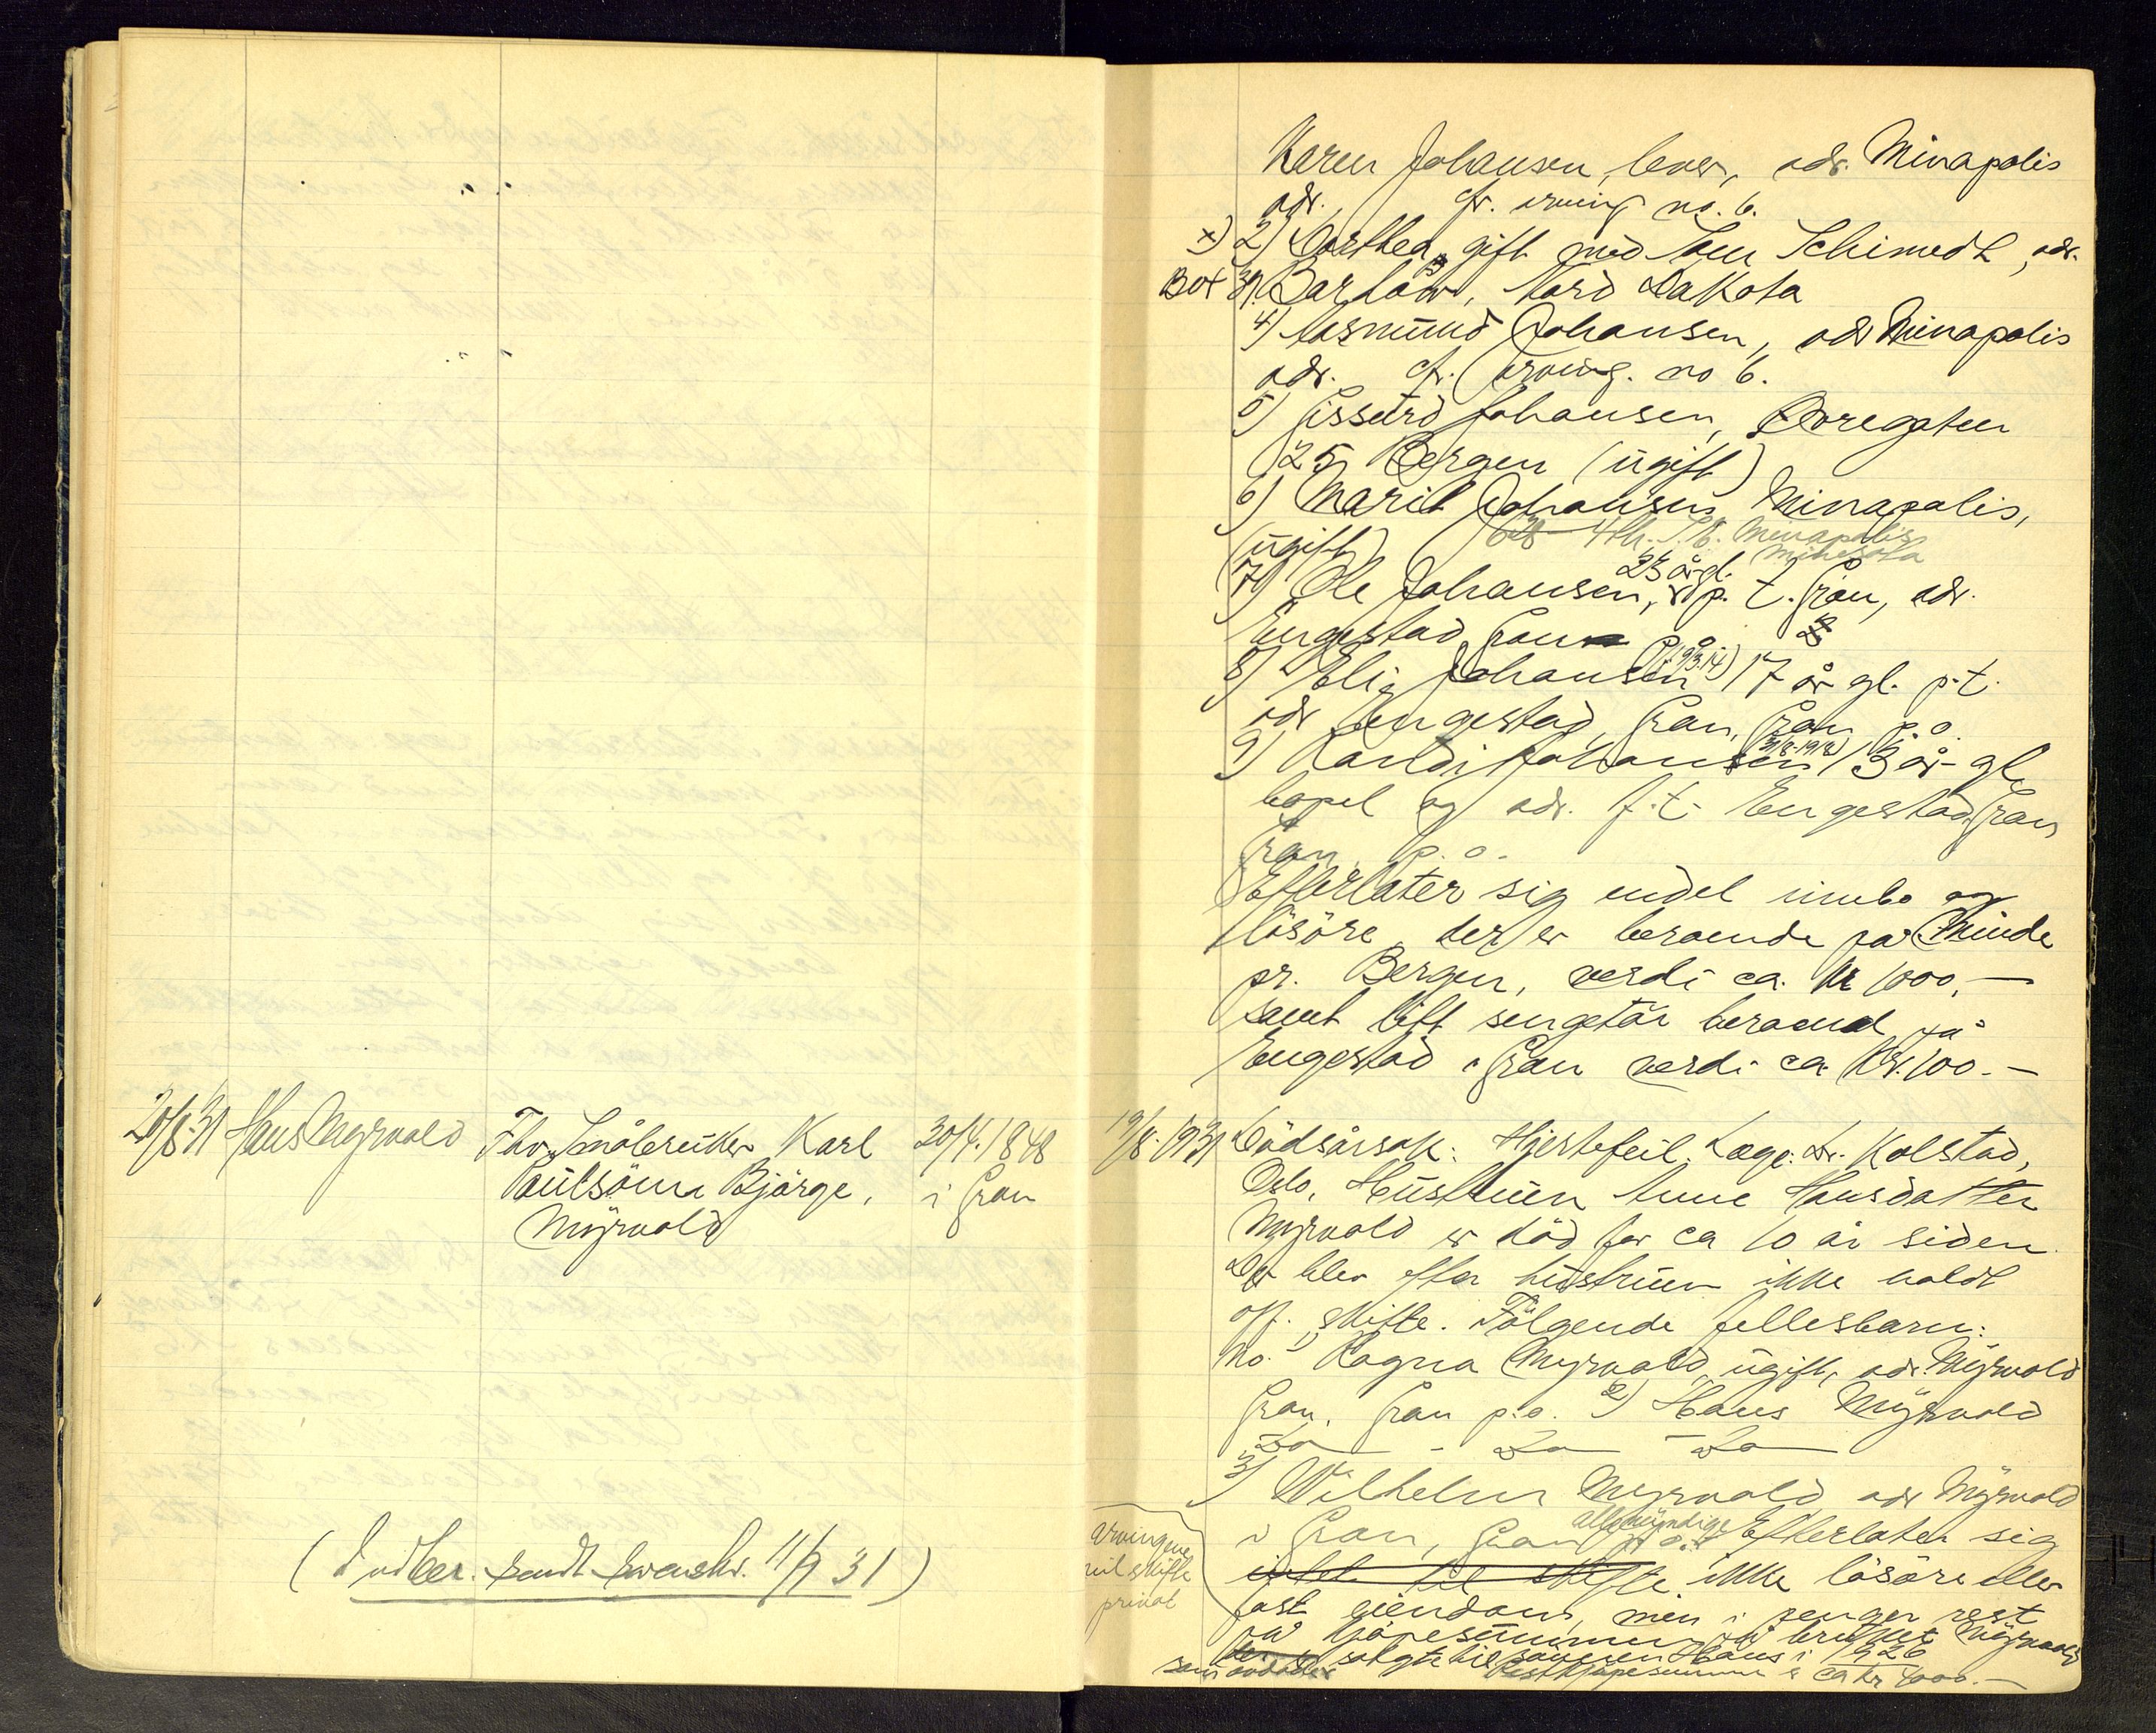 Karen Johansen, lever, adr. Minapolis
adr. cfr. arving no. 6.
x) 2) Dorthea, gift med Schimedt, adr.
Box 39. Barlow, Nord Dakota
4) Aasmund Johansen, adr Minapolis
adr. cfr. Arving. no 6.
5) Gissurd Johansen, Øvregaten
25 Bergen (ugift)
6) Marit Johansen Minapolis,
(ugift) 628 4th. S.E. Minapolis
Minesota
7) Ole Johansen, 23 år gl. p. t. Gran, adr.
Engestad Gran
8) Elig Johansen 17 år gl. p.t.
adr Engestad, Gran, Gran p.o.
9) Randi Johansen (31/8-1918) 13 år gl,
bopel og adr. p.t. Engestad, Gran,
Gran p.o.
Efterlater sig endel innbo og
løsøre der er beroende på Minde
pr. Bergen, verdi ca. kr 1000,-
samt litt sengetöi beroend på
Engestad i Gran verdi ca Kr. 100.-
20/8-31 Hans Myrvold
Fhv. Småbruker Karl
Paulsönn Bjørge,
Myrvold
30/4. 1848
i Gran
19/8-1931
Dödsårsak: Hjertefeil. Læge: Dr. Kolstad,
Oslo. Hustruen Anne Hansdatter
Myrvold er död for ca 10 år siden
Det blev efter hustruen ikke holdt
off. skifte. Fölgende fellesbarn:
No. 1) Ragna Myrvold, ugift, adr. Myrvold
Gran. Gran p.o. 2) Hans Myrvold
Do - Do - Do
3) Wilhelm Myrvold adr Myrvold
i Gran, Gran p.o. alle myndige Efterlater sig
intet til skifte. ikke løsøre eller
fast eiendom, men i penger rest
på kjøpesummen på bruket Myrvold
solgte til sønnen Hans i 1926
som Restkjøpesummen er ca kr 4000.-
Arvingene
vil skifte
privat
(Indber. sendt 11/9 31)